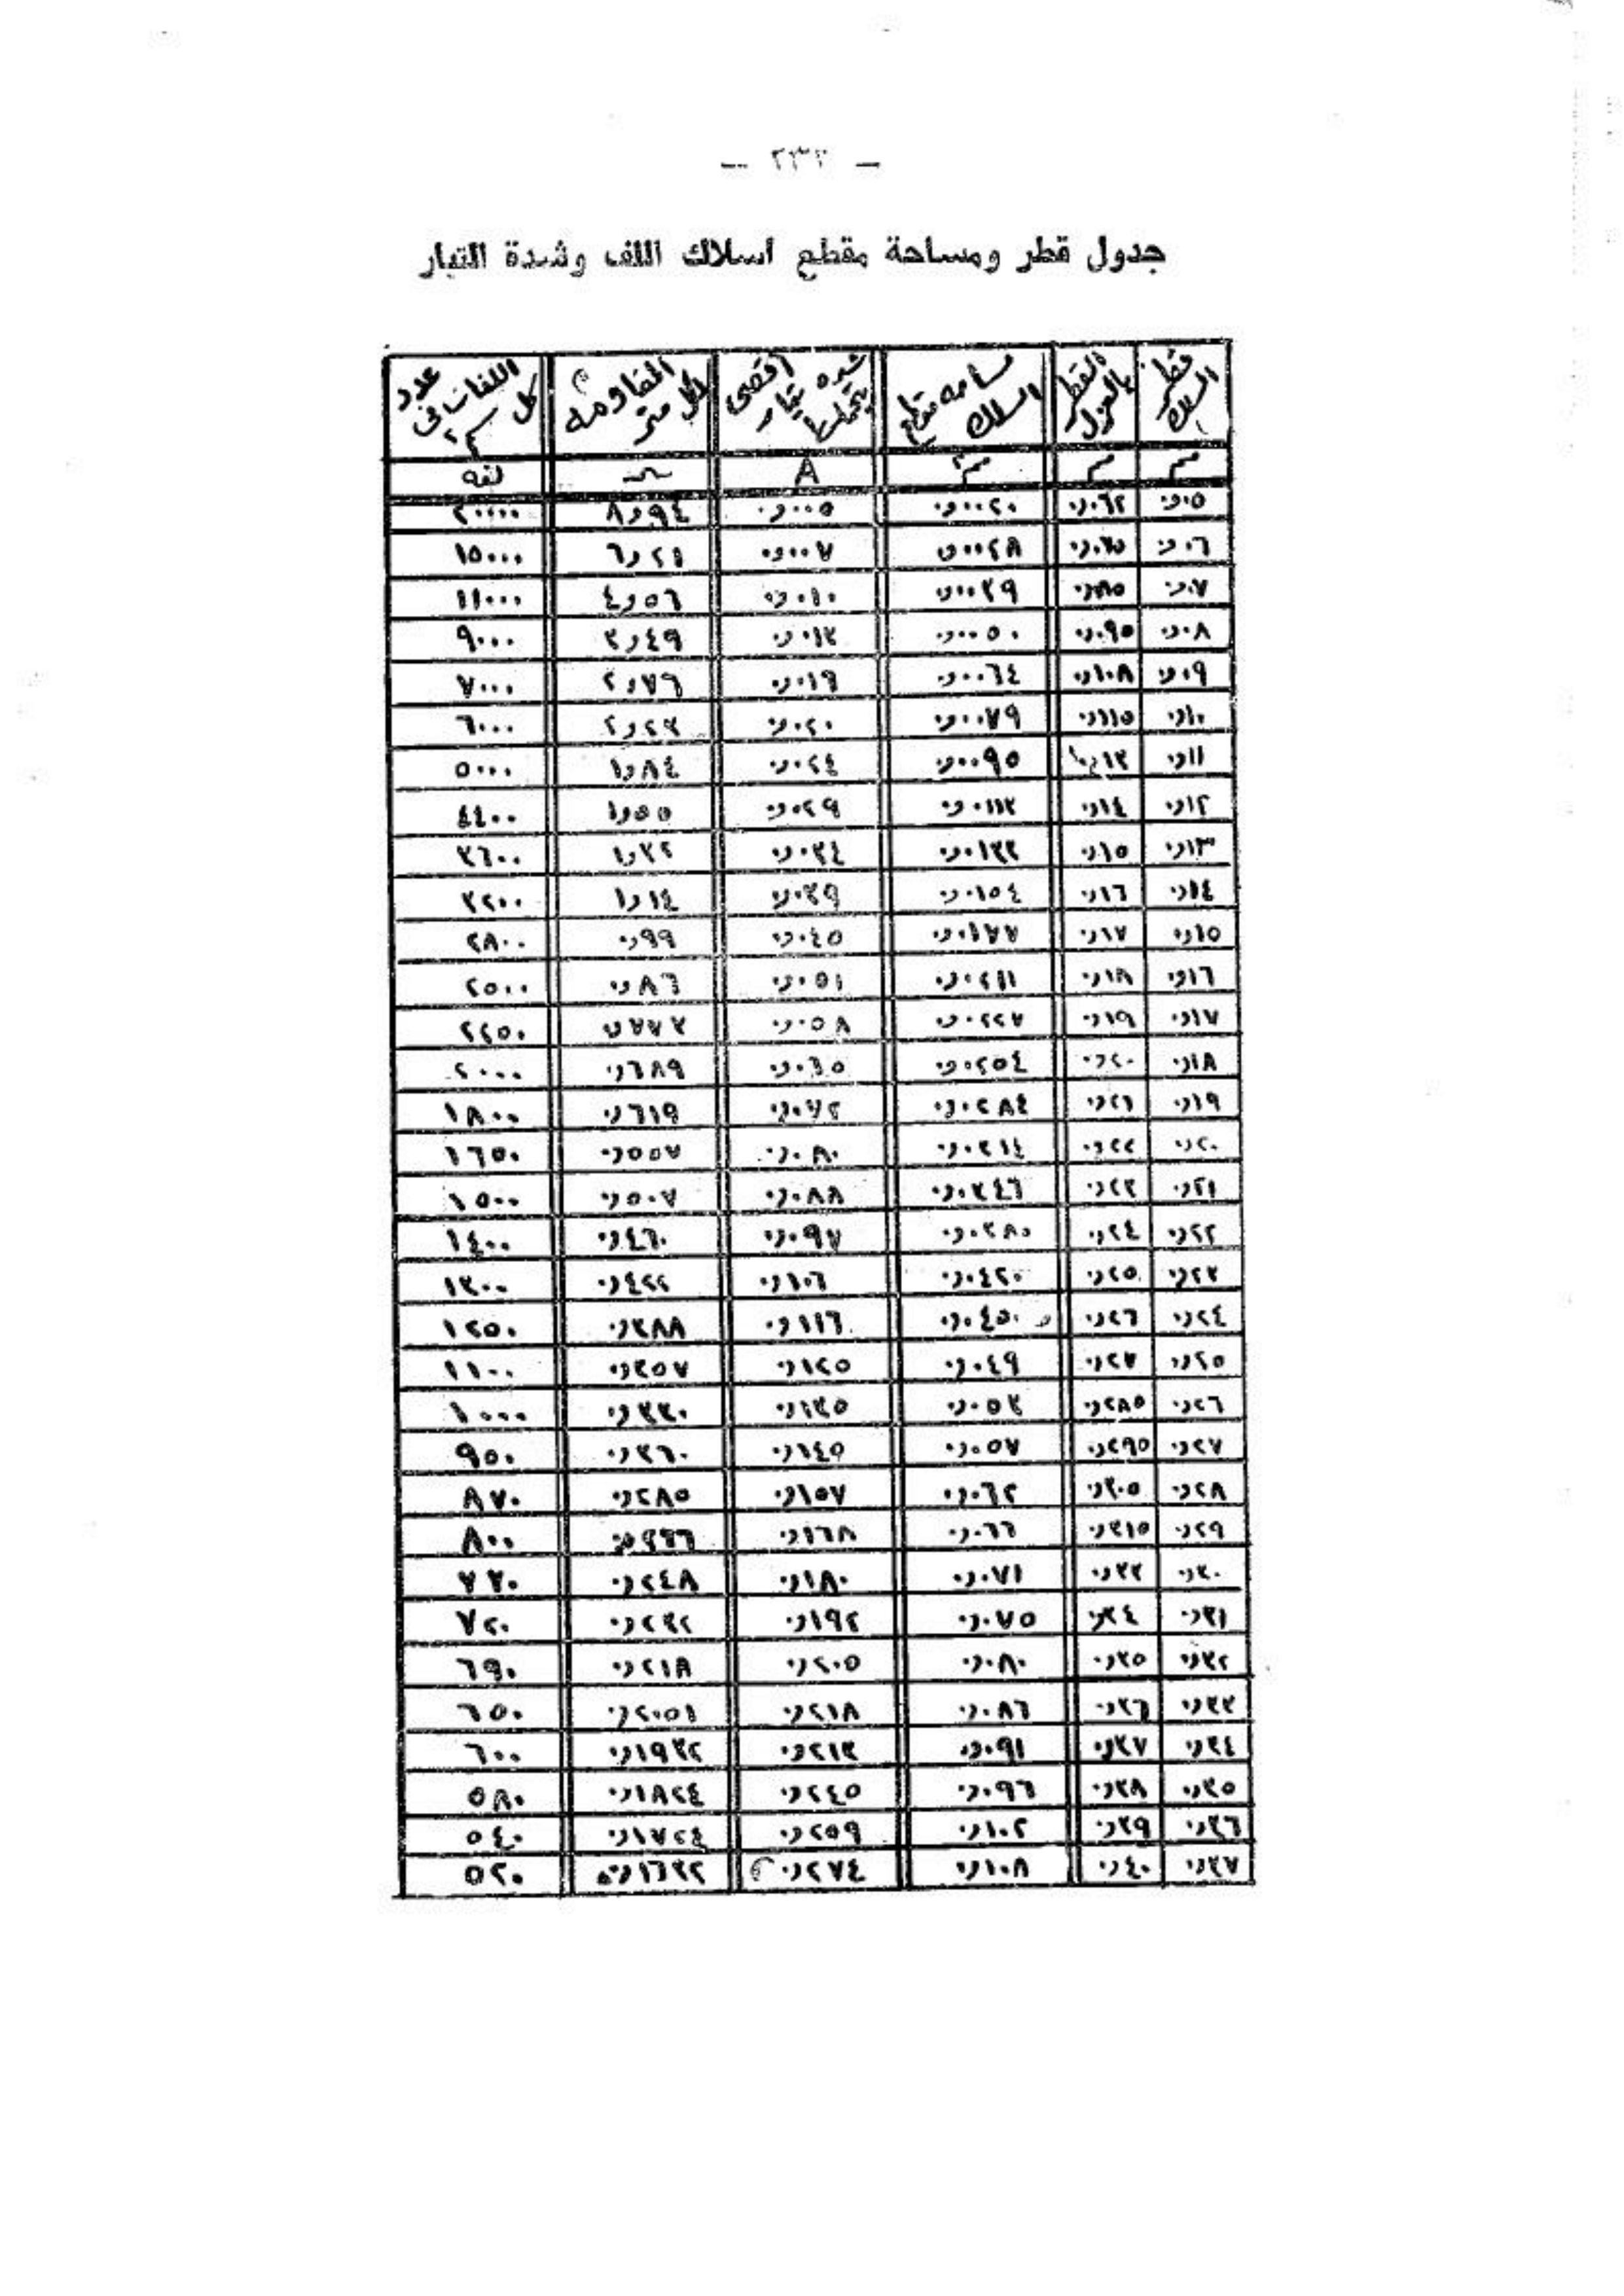 — ٢٣٢ —
جدول قطر ومساحة مقطع اسلاك اللف وشدة التيار
قطر السلك | القطر بالعزل | مساحة مقطع السلك | اقصى شدة تيار يتحملها | المقاومه لكل متر | عدد اللفات فى كل سم٢
مم | مم | مم٢ | A | | لفه
٠٫٠٥ | ٠٫٠٦٢ | ٠٫٠٠٢٠ | ٠٫٠٠٥ | ٨٫٩٤ | ٢٠٠٠٠
٠٫٠٦ | ٠٫٠٧٥ | ٠٫٠٠٢٨ | ٠٫٠٠٧ | ٦٫٢١ | ١٥٠٠٠
٠٫٠٧ | ٠٫٠٨٥ | ٠٫٠٠٣٩ | ٠٫٠١٠ | ٤٫٥٦ | ١١٠٠٠
٠٫٠٨ | ٠٫٠٩٥ | ٠٫٠٠٥٠ | ٠٫٠١٣ | ٣٫٤٩ | ٩٠٠٠
٠٫٠٩ | ٠٫١٠٨ | ٠٫٠٠٦٤ | ٠٫٠١٦ | ٢٫٧٦ | ٧٠٠٠
٠٫١٠ | ٠٫١١٥ | ٠٫٠٠٧٩ | ٠٫٠٢٠ | ٢٫٢٣ | ٦٠٠٠
٠٫١١ | ٠٫١٣ | ٠٫٠٠٩٥ | ٠٫٠٢٤ | ١٫٨٤ | ٥٠٠٠
٠٫١٢ | ٠٫١٤ | ٠٫٠١١٣ | ٠٫٠٢٩ | ١٫٥٥ | ٤٤٠٠
٠٫١٣ | ٠٫١٥ | ٠٫٠١٣٣ | ٠٫٠٣٤ | ١٫٣٢ | ٣٦٠٠
٠٫١٤ | ٠٫١٦ | ٠٫٠١٥٤ | ٠٫٠٣٩ | ١٫١٤ | ٣٢٠٠
٠٫١٥ | ٠٫١٧ | ٠٫٠١٧٧ | ٠٫٠٤٥ | ٠٫٩٩ | ٢٨٠٠
٠٫١٦ | ٠٫١٨ | ٠٫٠٢١١ | ٠٫٠٥١ | ٠٫٨٦ | ٢٥٠٠
٠٫١٧ | ٠٫١٩ | ٠٫٠٢٢٧ | ٠٫٠٥٨ | ٠٫٧٧٣ | ٢٢٥٠
٠٫١٨ | ٠٫٢٠ | ٠٫٠٢٥٤ | ٠٫٠٦٥ | ٠٫٦٨٩ | ٢٠٠٠
٠٫١٩ | ٠٫٢١ | ٠٫٠٢٨٤ | ٠٫٠٧٢ | ٠٫٦١٩ | ١٨٠٠
٠٫٢٠ | ٠٫٢٢ | ٠٫٠٣١٤ | ٠٫٠٨٠ | ٠٫٥٥٧ | ١٦٥٠
٠٫٢١ | ٠٫٢٣ | ٠٫٠٣٤٦ | ٠٫٠٨٨ | ٠٫٥٠٧ | ١٥٠٠
٠٫٢٢ | ٠٫٢٤ | ٠٫٠٣٨٠ | ٠٫٠٩٧ | ٠٫٤٦٠ | ١٤٠٠
٠٫٢٣ | ٠٫٢٥ | ٠٫٠٤٢٠ | ٠٫١٠٦ | ٠٫٤٢٢ | ١٣٠٠
٠٫٢٤ | ٠٫٢٦ | ٠٫٠٤٥٠ | ٠٫١١٦ | ٠٫٣٨٨ | ١٢٥٠
٠٫٢٥ | ٠٫٢٧ | ٠٫٠٤٩ | ٠٫١٢٥ | ٠٫٣٥٧ | ١١٠٠
٠٫٢٦ | ٠٫٢٨٥ | ٠٫٠٥٣ | ٠٫١٣٥ | ٠٫٣٣٠ | ١٠٠٠
٠٫٢٧ | ٠٫٢٩٥ | ٠٫٠٥٧ | ٠٫١٤٥ | ٠٫٣٦٠ | ٩٥٠
٠٫٢٨ | ٠٫٣٠٥ | ٠٫٠٦٢ | ٠٫١٥٧ | ٠٫٢٨٥ | ٨٧٠
٠٫٢٩ | ٠٫٣١٥ | ٠٫٠٦٦ | ٠٫١٦٨ | | ٨٠٠
٠٫٣٠ | ٠٫٣٣ | ٠٫٠٧١ | ٠٫١٨٠ | ٠٫٢٤٨ | ٧٧٠
٠٫٣١ | ٠٫٣٤ | ٠٫٠٧٥ | ٠٫١٩٢ | ٠٫٢٣٢ | ٧٢٠
٠٫٣٢ | ٠٫٣٥ | ٠٫٠٨٠ | ٠٫٢٠٥ | ٠٫٢١٨ | ٦٩٠
٠٫٣٣ | ٠٫٣٦ | ٠٫٠٨٦ | ٠٫٢١٨ | ٠٫٢٠٥١ | ٦٥٠
٠٫٣٤ | ٠٫٣٧ | ٠٫٠٩١ | ٠٫٢١٣ | ٠٫١٩٣٢ | ٦٠٠
٠٫٣٥ | ٠٫٣٨ | ٠٫٠٩٦ | ٠٫٢٤٥ | ٠٫١٨٢٤ | ٥٨٠
٠٫٣٦ | ٠٫٣٩ | ٠٫١٠٢ | ٠٫٢٥٩ | ٠٫١٧٢٤ | ٥٤٠
٠٫٣٧ | ٠٫٤٠ | ٠٫١٠٨ | ٠٫٢٧٤ | ٠٫١٦٣٢ | ٥٢٠